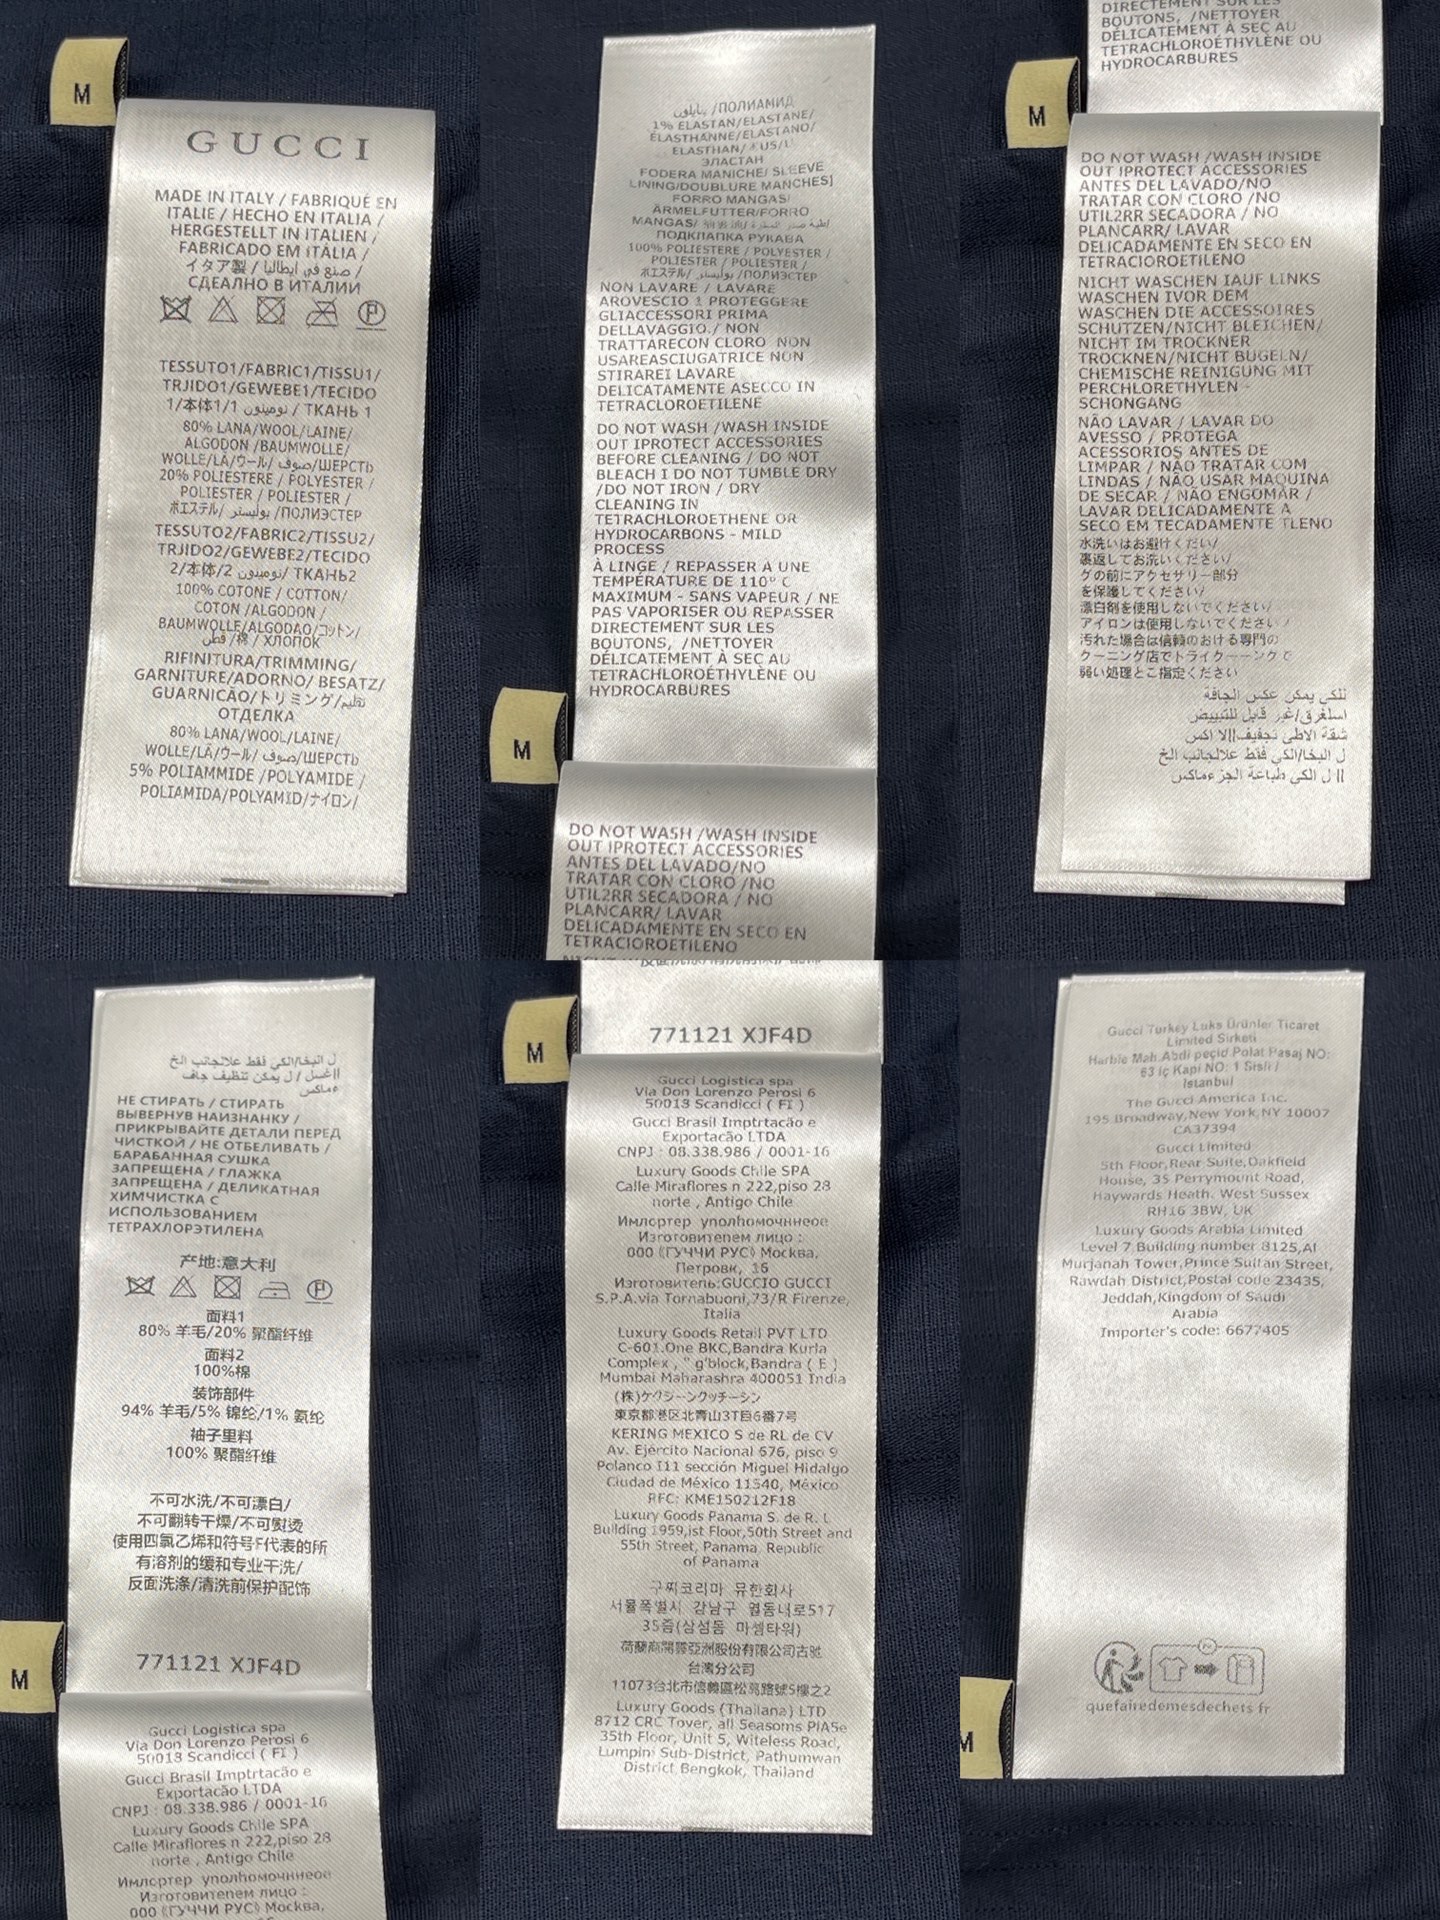 M
GUCCI
MADE IN ITALY / FABRIQUÉ EN
ITALIE / HECHO EN ITALIA /
HERGESTELLT IN ITALIEN /
FABRICADO EM ITÁLIA /
イタア製 / صنع في ايطاليا /
СДЕАЛНО В ИТАЛИИ
P
TESSUTO1/FABRIC1/TISSU1/
TRJIDO1/GEWEBE1/TECIDO
1/本体1/1 نومينون / ТКАНЬ 1
80% LANA/WOOL/LAINE/
ALGODON /BAUMWOLLE/
WOLLE/LÃ/ウール/ صوف/ШЕРСТЬ
20% POLIESTERE / POLYESTER /
POLIESTER / POLIESTER /
ポエステル/ بوليستر /ПОЛИЭСТЕР
TESSUTO2/FABRIC2/TISSU2/
TRJIDO2/GEWEBE2/TECIDO
2/本体/2 نومينون/ ТКАНЬ2
100% COTONE / COTTON/
COTON /ALGODON /
BAUMWOLLE/ALGODAO/コットン/
قطن /棉 / ХЛОПОК
RIFINITURA/TRIMMING/
GARNITURE/ADORNO/ BESATZ/
GUARNICÃO/トリミング/تقليم
ОТДЕЛКА
80% LANA/WOOL/LAINE/
WOLLE/LÃ/ウール/ صوف/ШЕРСТЬ
5% POLIAMMIDE /POLYAMIDE /
POLIAMIDA/POLYAMID/ナイロン/
/ПОЛИАМИД
1% ELASTAN/ELASTANE/
ÉLASTHANNE/ELASTANO/
ELASTHAN/
ЭЛАСТАН
FODERA MANICHE/ SLEEVE
LINING/DOUBLURE MANCHES]
FORRO MANGAS/
ÄRMELFUTTER/FORRO
MANGAS/
ПОДКЛАПКА РУКАВА
100% POLIESTERE / POLYESTER /
POLIESTER / POLIESTER /
ポエステル/ بوليستر /ПОЛИЭСТЕР
NON LAVARE / LAVARE
AROVESCIO I PROTEGGERE
GLIACCESSORI PRIMA
DELLAVAGGIO./ NON
TRATTARECON CLORO NON
USAREASCIUGATRICE NON
STIRAREI LAVARE
DELICATAMENTE ASECCO IN
TETRACLOROETILENE
DO NOT WASH /WASH INSIDE
OUT IPROTECT ACCESSORIES
BEFORE CLEANING / DO NOT
BLEACH I DO NOT TUMBLE DRY
/DO NOT IRON / DRY
CLEANING IN
TETRACHLOROETHENE OR
HYDROCARBONS - MILD
PROCESS
À LINGE / REPASSER À UNE
TEMPÉRATURE DE 110° C
MAXIMUM - SANS VAPEUR / NE
PAS VAPORISER OU REPASSER
DIRECTEMENT SUR LES
BOUTONS, /NETTOYER
DÉLICATEMENT À SEC AU
TETRACHLOROÉTHYLÈNE OU
HYDROCARBURES
M
DO NOT WASH /WASH INSIDE
OUT IPROTECT ACCESSORIES
ANTES DEL LAVADO/NO
TRATAR CON CLORO /NO
UTIL2RR SECADORA / NO
PLANCARR/ LAVAR
DELICADAMENTE EN SECO EN
TETRACIOROETILENO
DIRECTEMENT SUR LES
BOUTONS, /NETTOYER
DÉLICATEMENT À SEC AU
TETRACHLOROÉTHYLÈNE OU
HYDROCARBURES
M
DO NOT WASH /WASH INSIDE
OUT IPROTECT ACCESSORIES
ANTES DEL LAVADO/NO
TRATAR CON CLORO /NO
UTIL2RR SECADORA / NO
PLANCARR/ LAVAR
DELICADAMENTE EN SECO EN
TETRACIOROETILENO
NICHT WASCHEN IAUF LINKS
WASCHEN IVOR DEM
WASCHEN DIE ACCESSOIRES
SCHUTZEN/NICHT BLEICHEN/
NICHT IM TROCKNER
TROCKNEN/NICHT BUGELN/
CHEMISCHE REINIGUNG MIT
PERCHLORETHYLEN -
SCHONGANG
NÃO LAVAR / LAVAR DO
AVESSO / PROTEGA
ACESSORIOS ANTES DE
LIMPAR / NÃO TRATAR COM
LINDAS / NÃO USAR MAQUINA
DE SECAR / NÃO ENGOMAR /
LAVAR DELICADAMENTE A
SECO EM TECADAMENTE TLENO
水洗いはお避けくだい/
裏返してお洗いください/
グの前にアクセサリー部分
を保護してください/
漂白剤を使用しないでください/
アイロンは使用しないでください/
汚れた場合は信頼のおける専門の
クーニング店でトライクーーンクで
弱い処理とご指定ください
للكي يمكن عكس الجافة
اسلغرق/غير قابل للتبييض
شقة الاطى نجفيف||لا اكس
ل البخا/الكي فقط علالجانب الخ
|| ل الكي طباعة الجزءماكس
ل البخا/الكي فقط علالجانب الخ
||غسل / ل يمكن تنظيف جاف
ءماكس
НЕ СТИРАТЬ / СТИРАТЬ
ВЫВЕРНУВ НАИЗНАНКУ /
ПРИКРЫВАЙТЕ ДЕТАЛИ ПЕРЕД
ЧИСТКОЙ / НЕ ОТБЕЛИВАТЬ /
БАРАБАННАЯ СУШКА
ЗАПРЕЩЕНА / ГЛАЖКА
ЗАПРЕЩЕНА / ДЕЛИКАТНАЯ
ХИМЧИСТКА С
ИСПОЛЬЗОВАНИЕМ
ТЕТРАХЛОРЭТИЛЕНА
产地:意大利
P
面料1
80% 羊毛/20% 聚酯纤维
面料2
100%棉
装饰部件
94% 羊毛/5% 锦纶/1% 氨纶
袖子里料
100% 聚酯纤维
不可水洗/不可漂白/
不可翻转干燥/不可熨烫
使用四氯乙烯和符号F代表的所
有溶剂的缓和专业干洗/
反面洗涤/清洗前保护配饰
771121 XJF4D
M
Gucci Logistica spa
Via Don Lorenzo Perosi 6
50013 Scandicci ( FI )
Gucci Brasil Imptrtacão e
Exportacão LTDA
CNPJ : 08.338.986 / 0001-16
Luxury Goods Chile SPA
Calle Miraflores n 222,piso 28
norte , Antigo Chile
Имлортер уполномочннеое
Изготовителем лицо :
000 《ГУЧЧИ РУС》 Москва,
771121 XJF4D
M
Gucci Logistica spa
Via Don Lorenzo Perosi 6
50013 Scandicci ( FI )
Gucci Brasil Imptrtacão e
Exportacão LTDA
CNPJ : 08.338.986 / 0001-16
Luxury Goods Chile SPA
Calle Miraflores n 222,piso 28
norte , Antigo Chile
Имлортер уполhомочннеое
Изготовитепем лицо :
000 《ГУЧЧИ РУС》 Москва,
Петровк, 16
Изготовитель:GUCCIO GUCCI
S.P.A.via Tornabuoni,73/R Firenze,
Italia
Luxury Goods Retail PVT LTD
C-601.One BKC,Bandra Kurla
Complex , " g'block,Bandra ( E )
Mumbai Maharashra 400051 India
(株)ケクジーンクッチーシン
東京都港区北青山3丁目6番7号
KERING MEXICO S de RL de CV
Av. Ejército Nacional 676, piso 9
Polanco I11 sección Miguel Hidalgo
Ciudad de México 11540, México
RFC: KME150212F18
Luxury Goods Panama S. de R. L
Building 1959,ist Floor,50th Street and
55th Street, Panama, Republic
of Panama
구찌코리마 뮤한회사
서울폭별시 강남구 열돔내로517
35즘(삼섬돔 마셈타워)
荷蘭商開曼亞洲股份有限公司古馳
台灣分公司
11073台北市信義區松高路號5樓之2
Luxury Goods (Thailana) LTD
8712 CRC Tover, all Seasoms PlASe
35th Floor, Unit 5, Witeless Road,
Lumpini Sub-District, Pathumwan
District Bengkok, Thailand
Gucci Turkey Luks Ürünler Ticaret
Limited Sirketi
Harble Mah.Abdi peçid Polat Pasaj NO:
63 iç Kapi NO: 1 Sisli /
Istanbul
The Gucci America Inc.
195 Broadway,New York,NY 10007
CA37394
Gucci Limited
5th Floor,Rear Suite,Oakfield
House, 35 Perrymount Road,
Haywards Heath. West Sussex
RH16 3BW, UK
Luxury Goods Arabia Limited
Level 7 Building number 8125,Al
Murjanah Tower,Prince Sultan Street,
Rawdah District,Postal code 23435,
Jeddah,Kingdom of Saudi
Arabia
Importer's code: 6677405
quefairedemesdechets fr
M